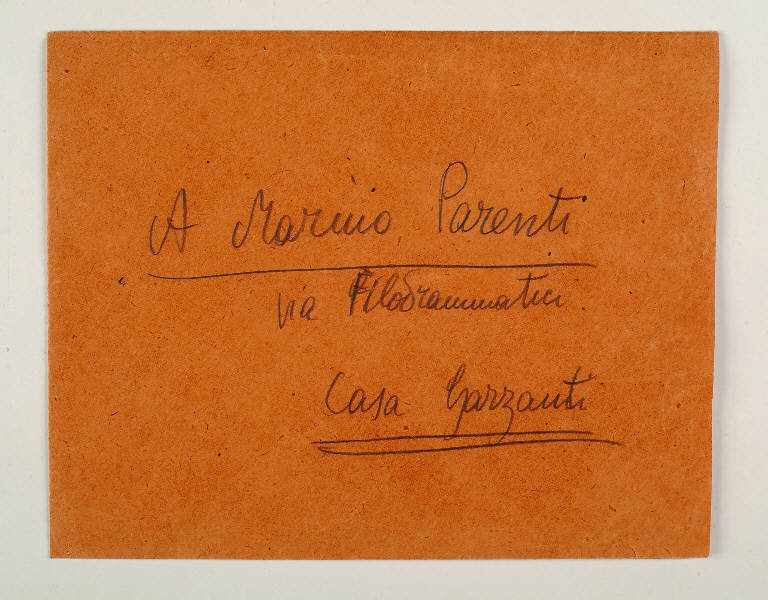 A Marino Parenti
via Filodrammatici.
Casa Garzanti